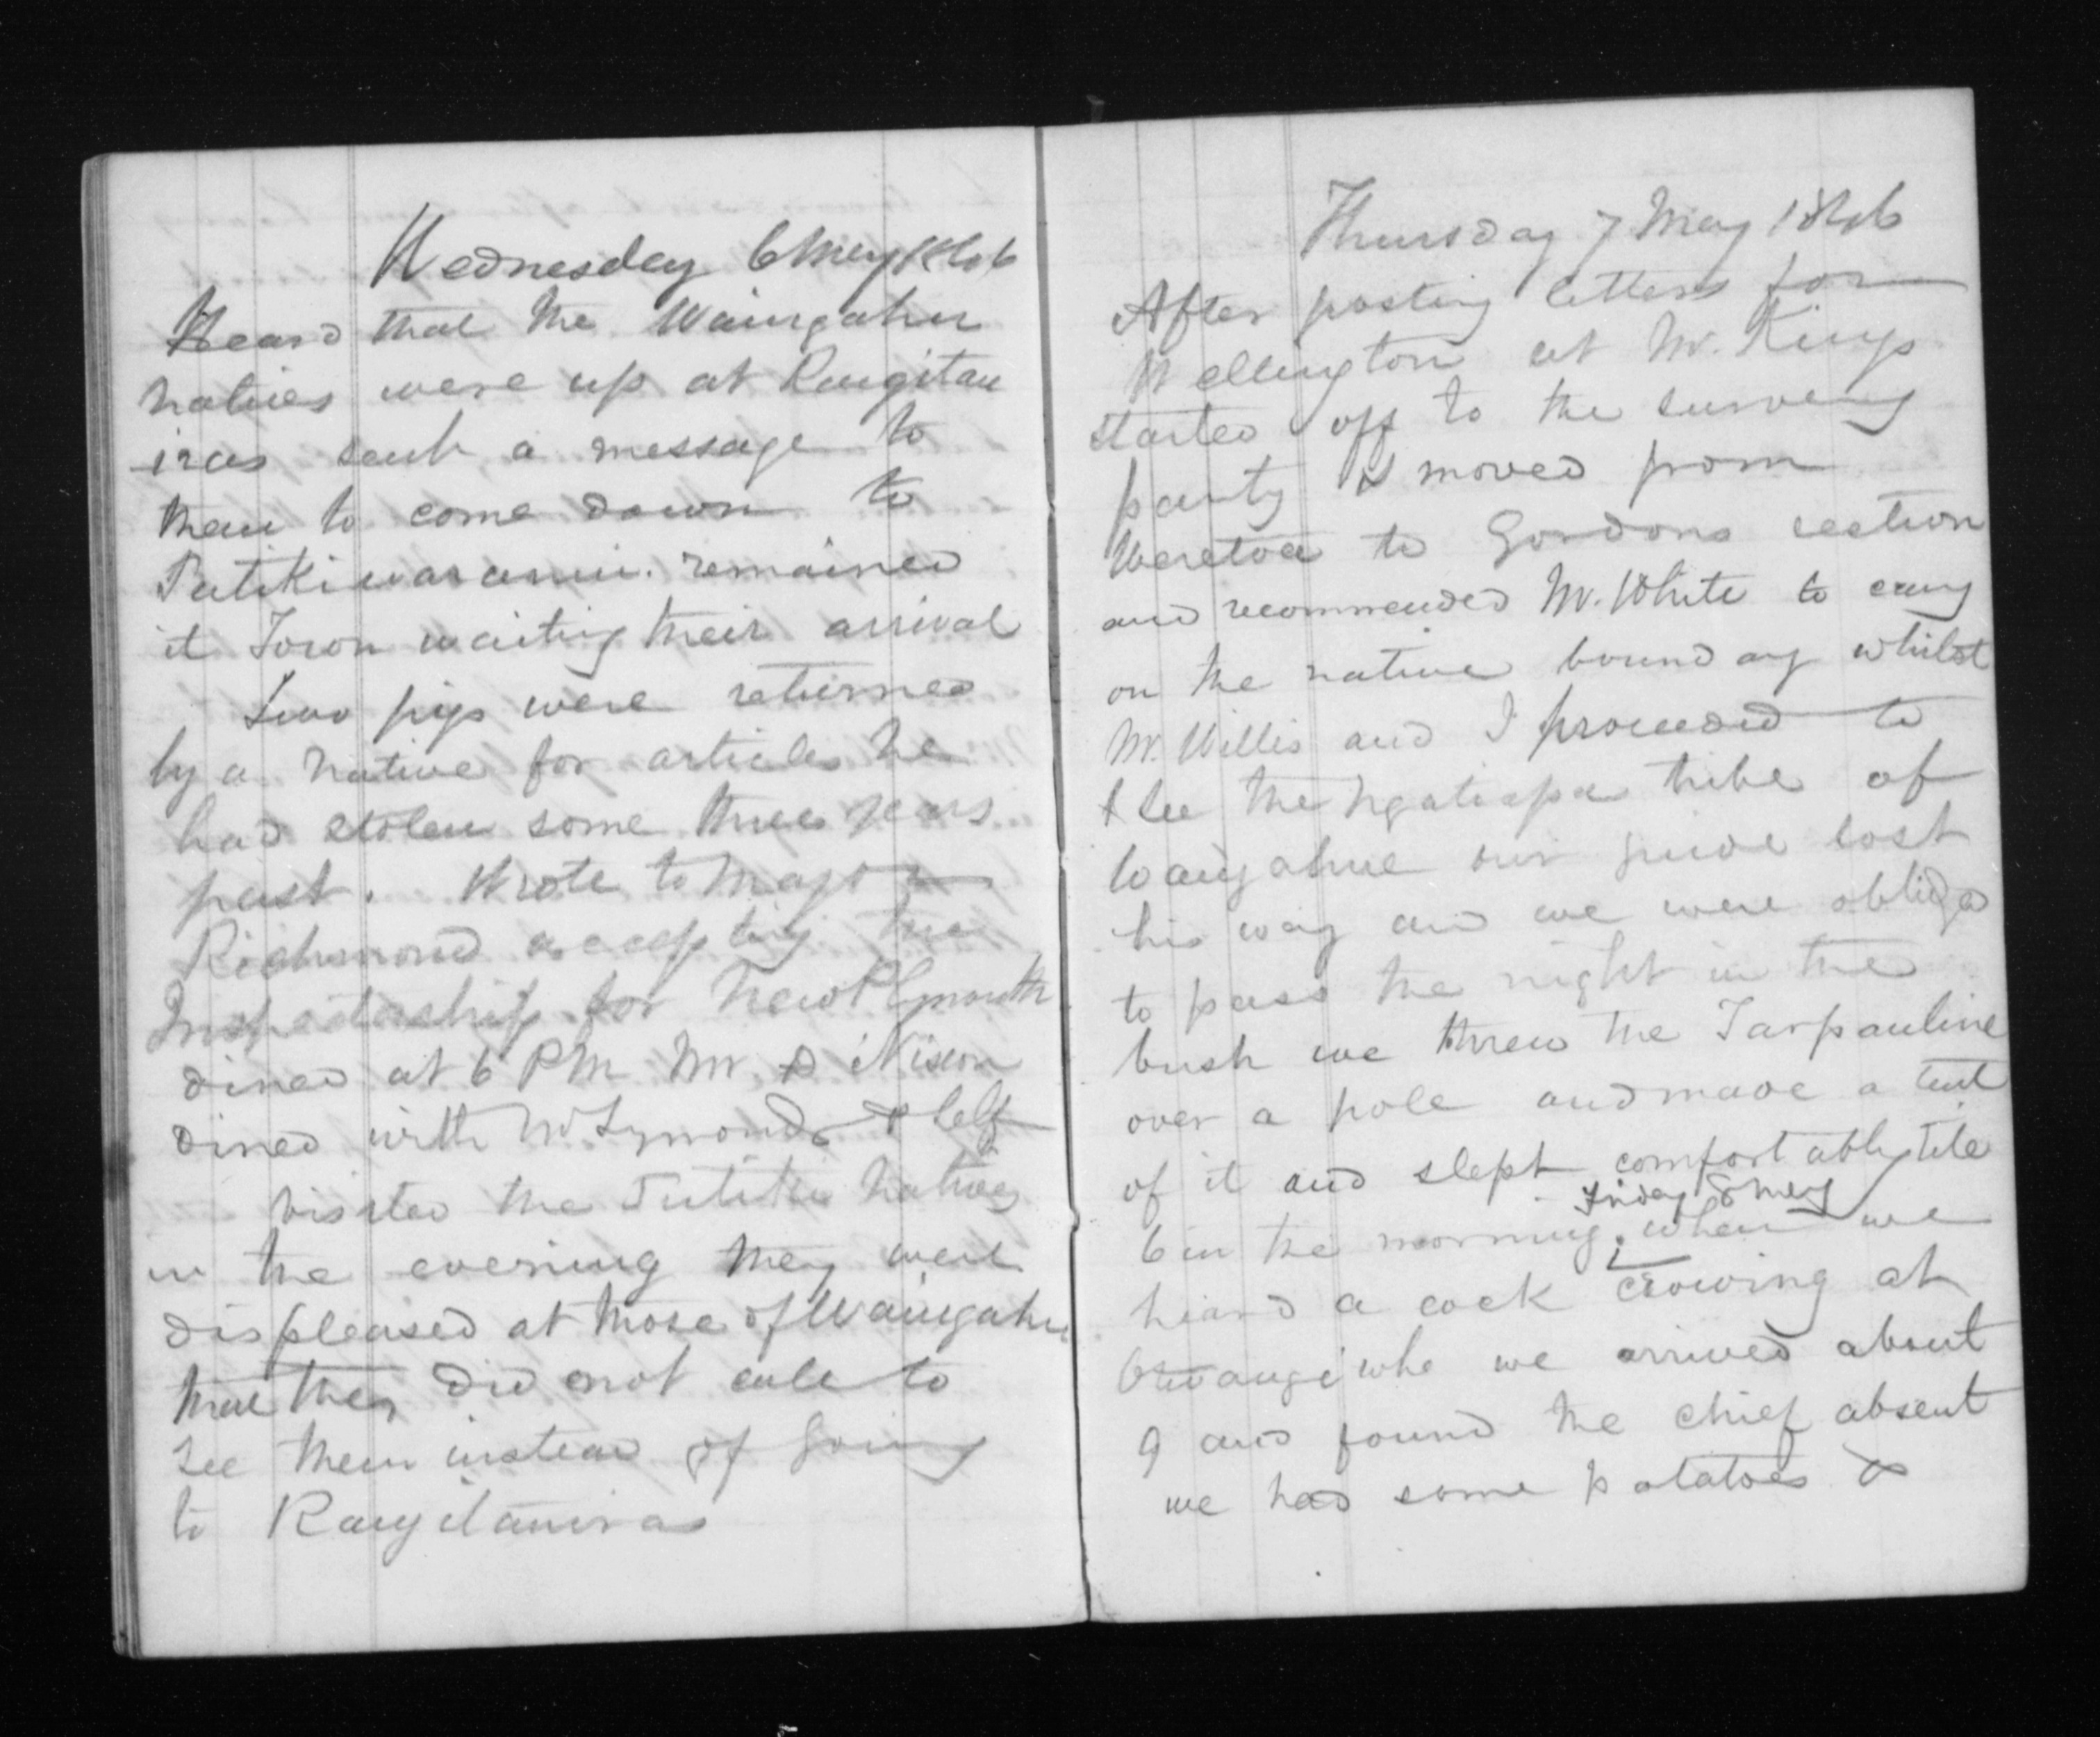 Wednesday 6 May 1846
Heard that the Waingahu
natives were up at Rangitau
iras sent a message to
them to come down to
Putikiwaranui. remained
it Town waiting their arrival
Two pigs were returned
by a native for articles he
had stolen some three years
past. Wrote to Major
Richmond accepting the
Inspectorship for New Plymouth
dined at 6 PM Mr. & Nixon
dined with Mr Symonds & self
visited the Putiki natives
in the evening they were
displeased at those of Waingahu
that they did not call to
see them instead of going
to Rangitauiras
Thursday 7 May 1846
After posting letters for
Wellington at Mr. Kings
started off to the survey
party & moved from
Weretoa to Gordons section
and recommended Mr. White to carry
on the native boundary whilst
Mr. Willis and I proceeded to
see the Ngatiapa tribe of
Waingahue our guide lost
his way and we were obliged
to pass the night in the
bush we threw the Tarpauline
over a pole and made a tent
of it and slept comfortably till
Friday 8 May
6 in the morning. when we
heard a cock crowing at
Otuangi whe we arrived about
9 and found the chief absent
we had some potatoes &